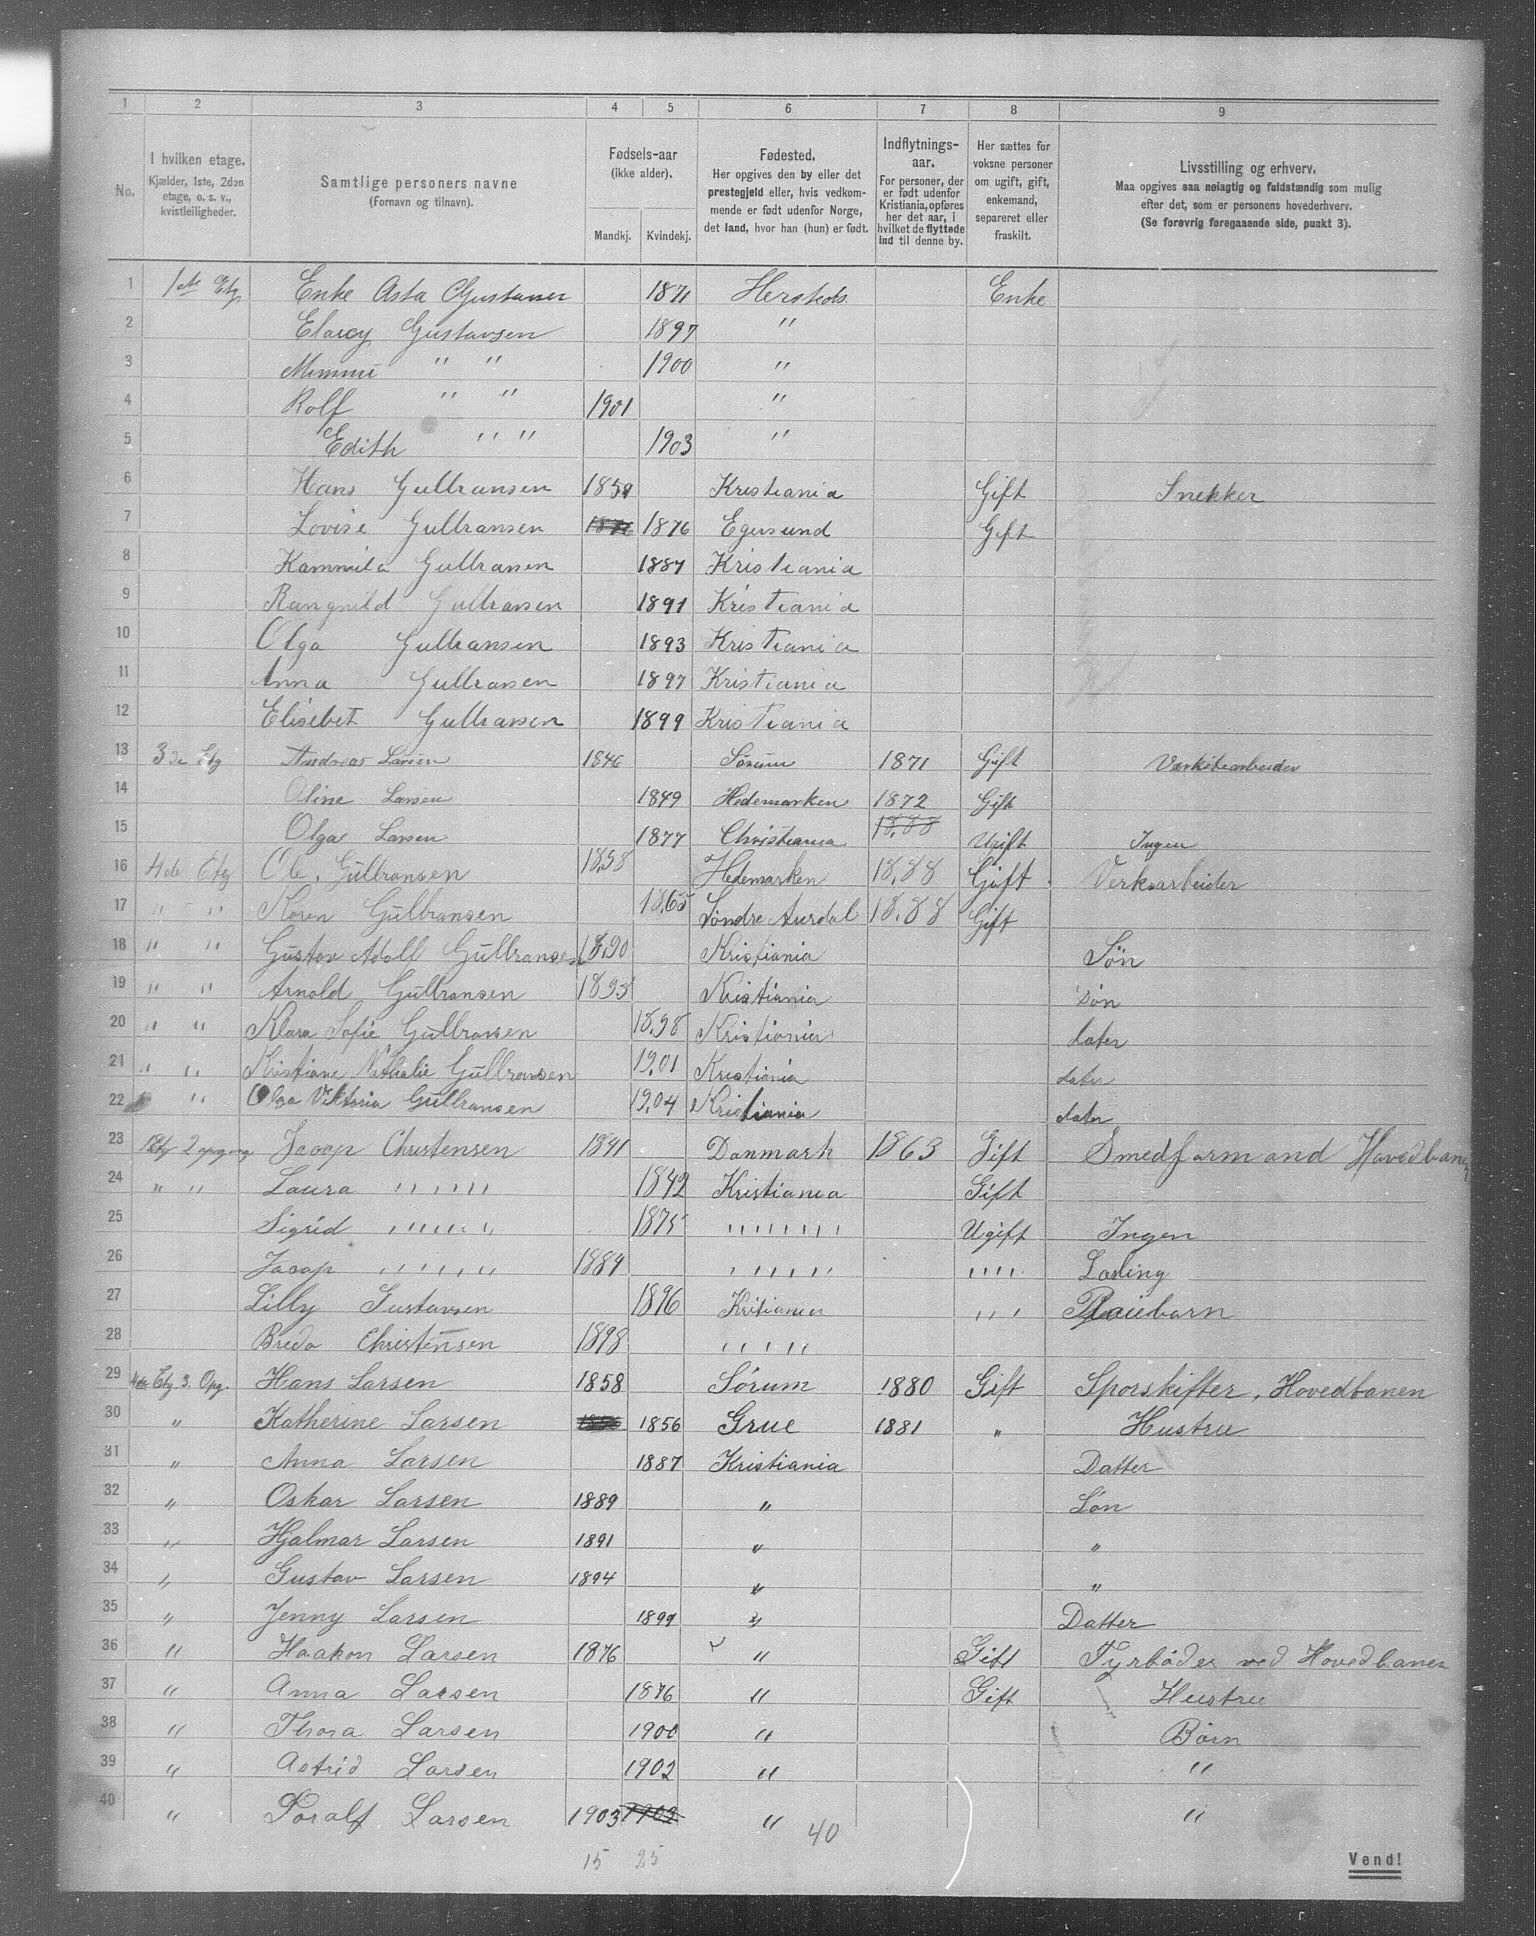 1 2 3 4 5 6 7 8 9
No. I hvilken etage. Kjælder, 1ste, 2den etage, o. s. v., kvistleiligheder. Samtlige personers navne (Fornavn og tilnavn). Fødsels-aar (ikke alder). Mandkj. Kvindekj. Fødested. Her opgives den by eller det prestegjeld eller, hvis vedkommende er født udenfor Norge, det land, hvor han (hun) er født. Indflytnings-aar. For personer, der er født udenfor Kristiania, opføres her det aar, i hvilket de flyttede ind til denne by. Her sættes for voksne personer om ugift, gift, enkemand, separeret eller fraskilt. Livsstilling og erhverv. Maa opgives saa nøiagtig og fuldstændig som mulig efter det, som er personens hovederhverv. (Se forøvrig foregaaende side, punkt 3).
1 1ste Etg Enke Asta Gustavsen 1871 Enke
2 Gustavsen 1897 "
3 Mimmi " " 1900 "
4 Rolf " " 1901 "
5 Edith " " 1903 "
6 Hans Gulbransen Kristiania Gift Snekker
7 Lovise Gulbransen 1876 Egersund Gift
8 Kammila Gulbransen 1887 Kristiania
9 Rangnild Gulbransen 1891 Kristiania
10 Olga Gulbransen 1893 Kristiania
11 Anna Gulbransen 1897 Kristiania
12 Elisebet Gulbransen 1899 Kristiania
13 3de Etg Andreas Larsen 1846 Sørum 1871 Gift Værkstearbeider
14 Oline Larsen 1849 Hedemarken 1872 Gift
15 Olga Larsen 1877 Christiania 1888 Ugift Ingen
16 4de Etg Ole Gulbransen 1858 Hedemarken 1888 Gift Verksarbeider
17 " " Karen Gulbransen 1865 Søndre Aurdal 1888 Gift
18 " " Gustav Adolf Gulbransen 1890 Kristiania Søn
19 " " Arnold Gulbransen 1895 Kristiania Søn
20 " " Klara Sofie Gulbransen 1898 Kristiania dater
21 " " Kristiane Nathalie Gulbransen 1901 Kristiania dater
22 " Olga Viktoria Gulbransen 1904 Kristiania dater
23 1Etg 2 opgang Jacop Christensen 1841 Danmark 1863 Gift Smedformand Hovedbanen
24 " " Laura " " " 1842 Kristiania Gift
25 Sigrid " " " 1875 " " " " Ugift Ingen
26 Jacop " " " 1884 " " " " " Lærling
27 Lilly Gustavsen 1896 Kritiania " " Pleiebarn
28 Breda Christensen 1898 " " "
29 4de Etg 3. Opg. Hans Larsen 1858 Sørum 1880 Gift Sporskifter, Hovedbanen
30 " Katherine Larsen 1856 Grue 1881 " Hustru
31 " Anna Larsen 1887 Kristiania Datter
32 " Oskar Larsen 1889 " Søn
33 " Hjalmar Larsen 1891 " "
34 " Gustav Larsen 1894 " "
35 " Jenny Larsen 1899 " Datter
36 " Haakon Larsen 1876 " Gift Fyrbøder ved Hovedbanen
37 " Anna Larsen 1876 " Gift Hustru
38 " Thora Larsen 1900 " Børn
39 " Astrid Larsen 1902 " "
40 " Toralf Larsen 1903 1903 " "
40
15 25
Vend!